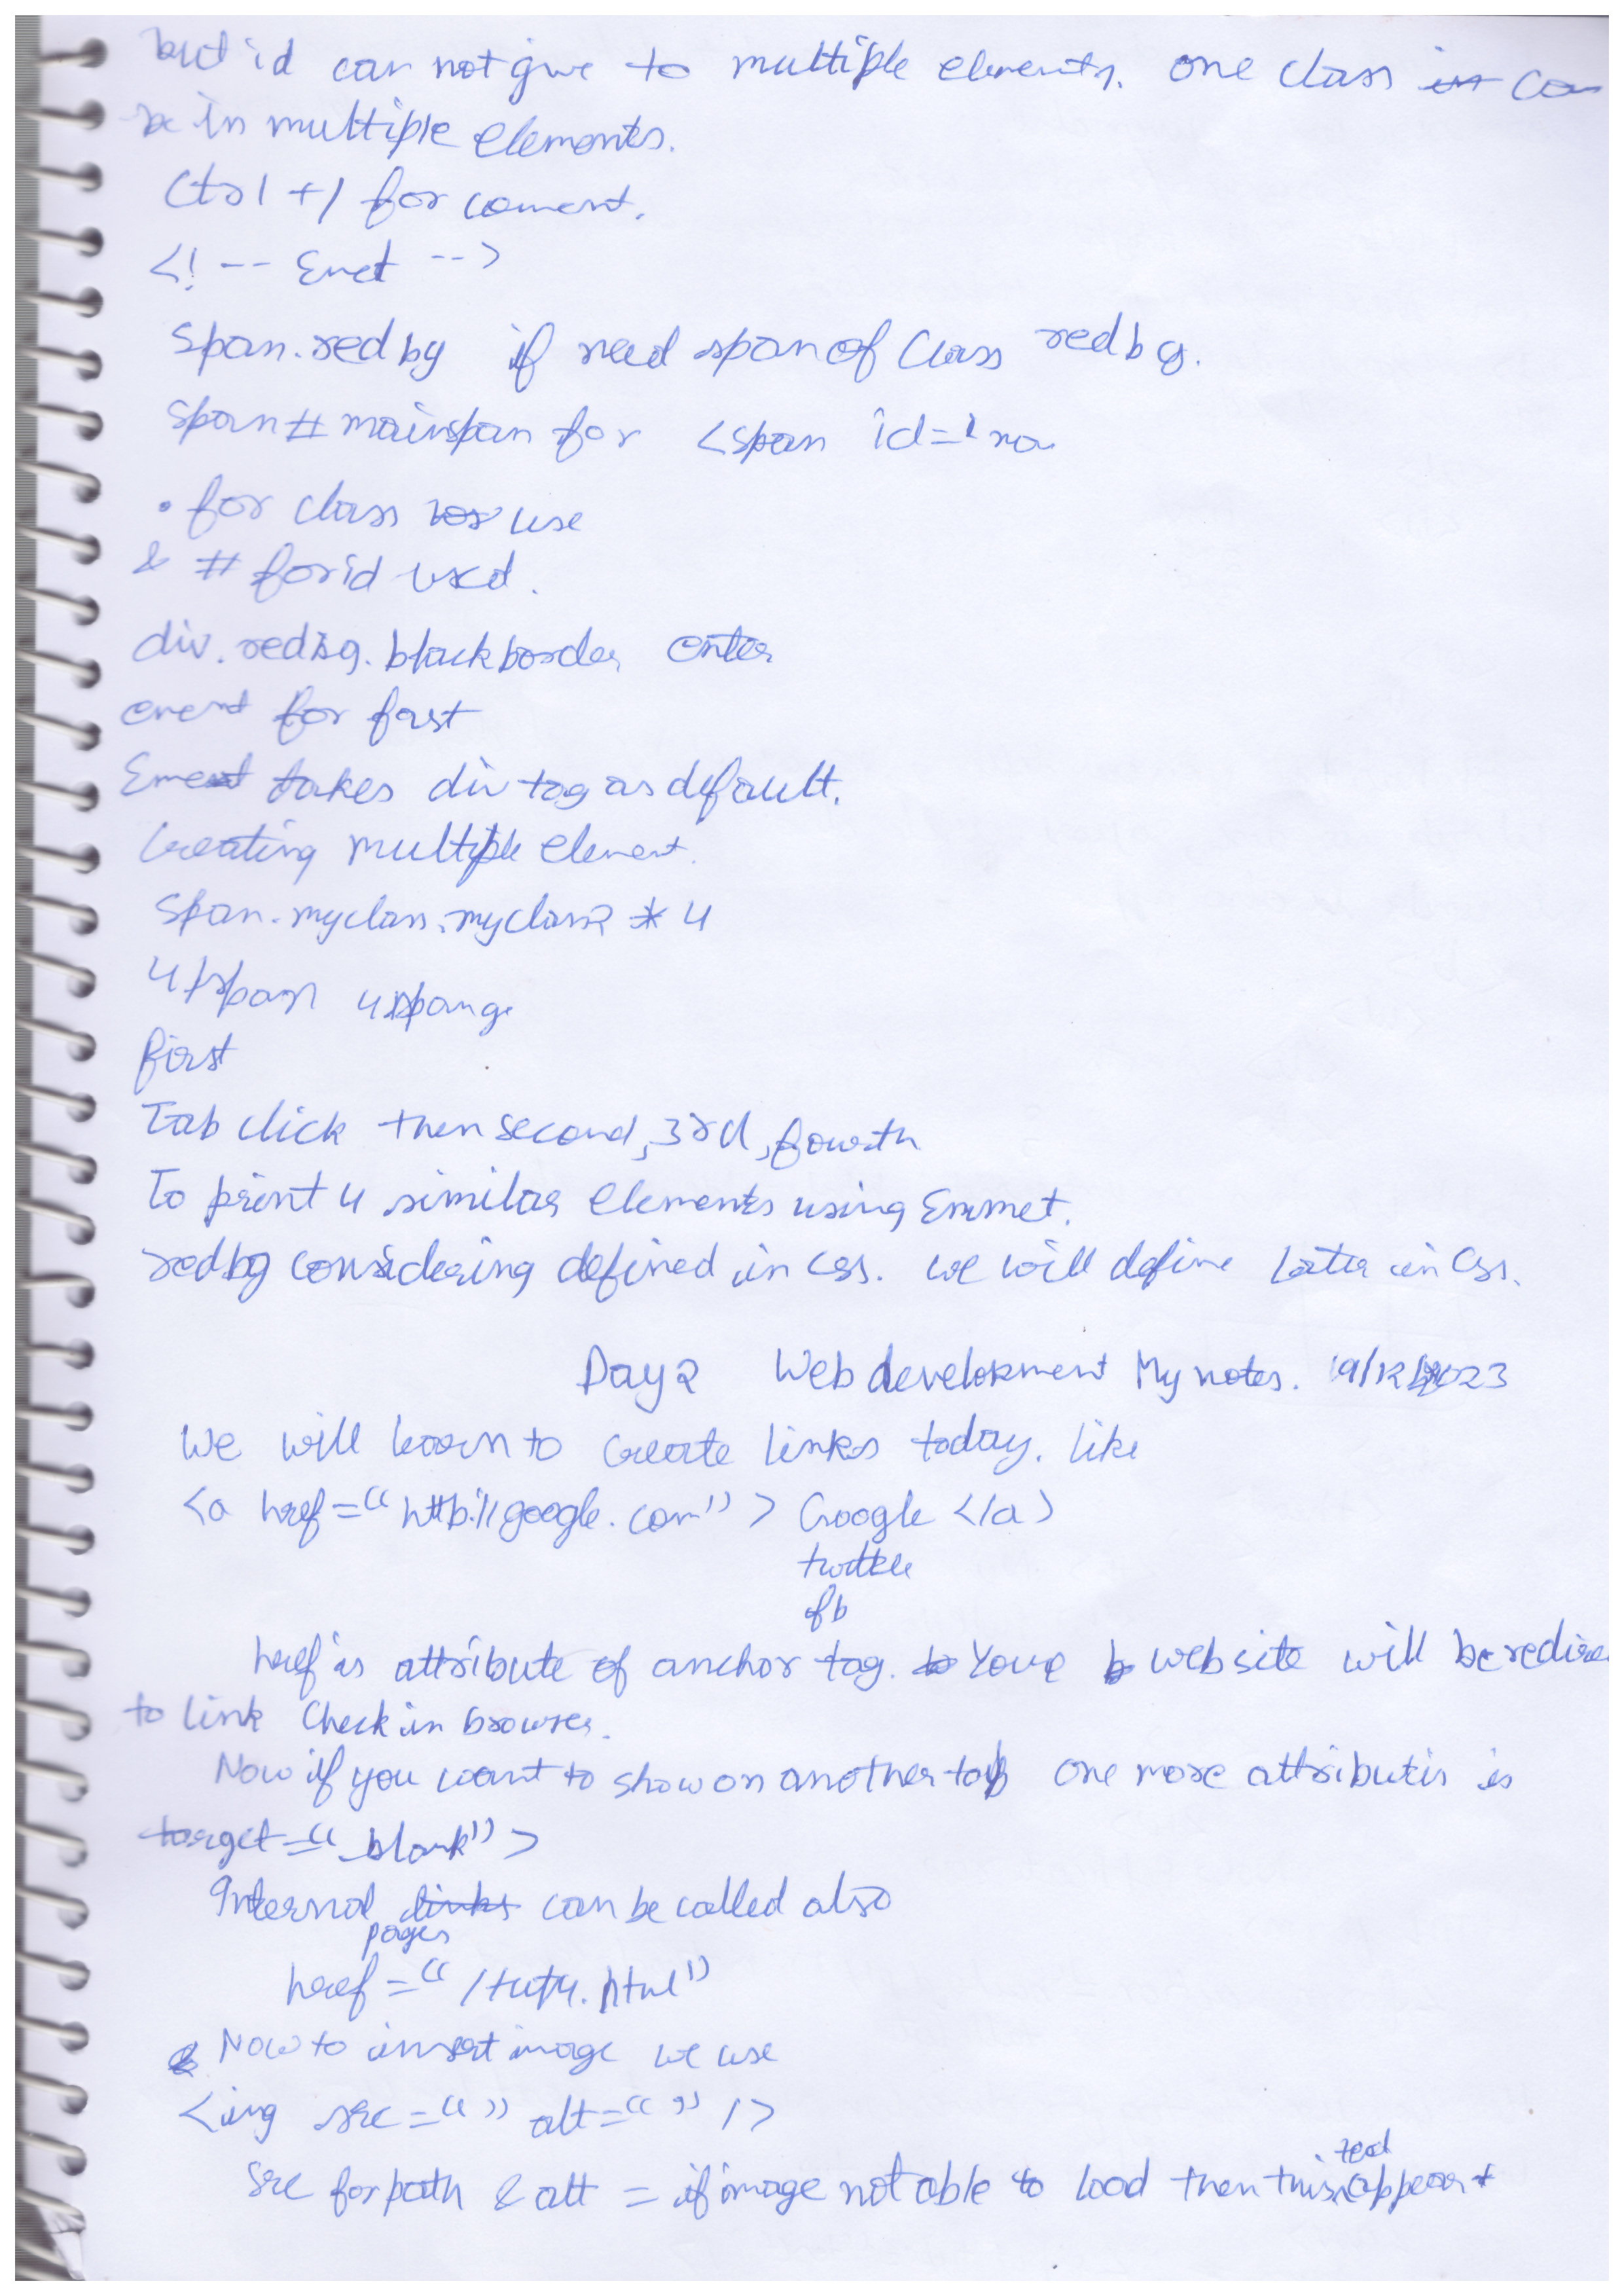 but id can not give to multiple elements. one class in can
be in multiple elements.
Ctrl +/ for coment.
<! -- Emet -->
span.redbg if need span of Class redbg.
span#mainspan for <span id="ma
. for class use
& # for id used.
div.redbg.blackborder enter
emert for fast
Emeet takes div tag as default.
Creating multiple element.
span.myclass.myclass2 * 4
4 span
first
Tab click then second, 3rd, fourth
To print 4 similar elements using Emmet.
redbg considering defined in css. we will define later in css.
Day 2 Web development My notes. 19/12/2023
We will learn to create links today. like
<a href="http://google.com"> Google </a>
fb
href is attribute of anchor tag. Your website will be redire
to link Check in browser.
Now if you want to show on another tab one more attributis is
target="_blank">
Internal links can be called also
pages
href="/tuty.html"
Now to insert image we use
<img src="" alt="" />
text
src for path & alt = if image not able to load then this appear